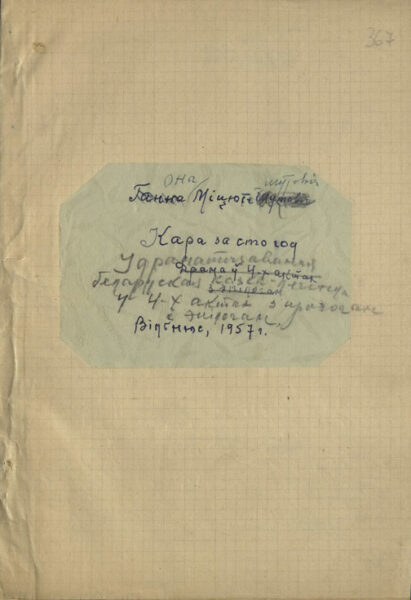 367
она шутовія
Ганна Міцюте
Кара за сто год
Удраматызаваная
Драма ў 4-х актах
беларуская казка-легенда
з эпілогам
у 4-х актах з прологам
і эпілогам
Вільнюс, 1957 г.